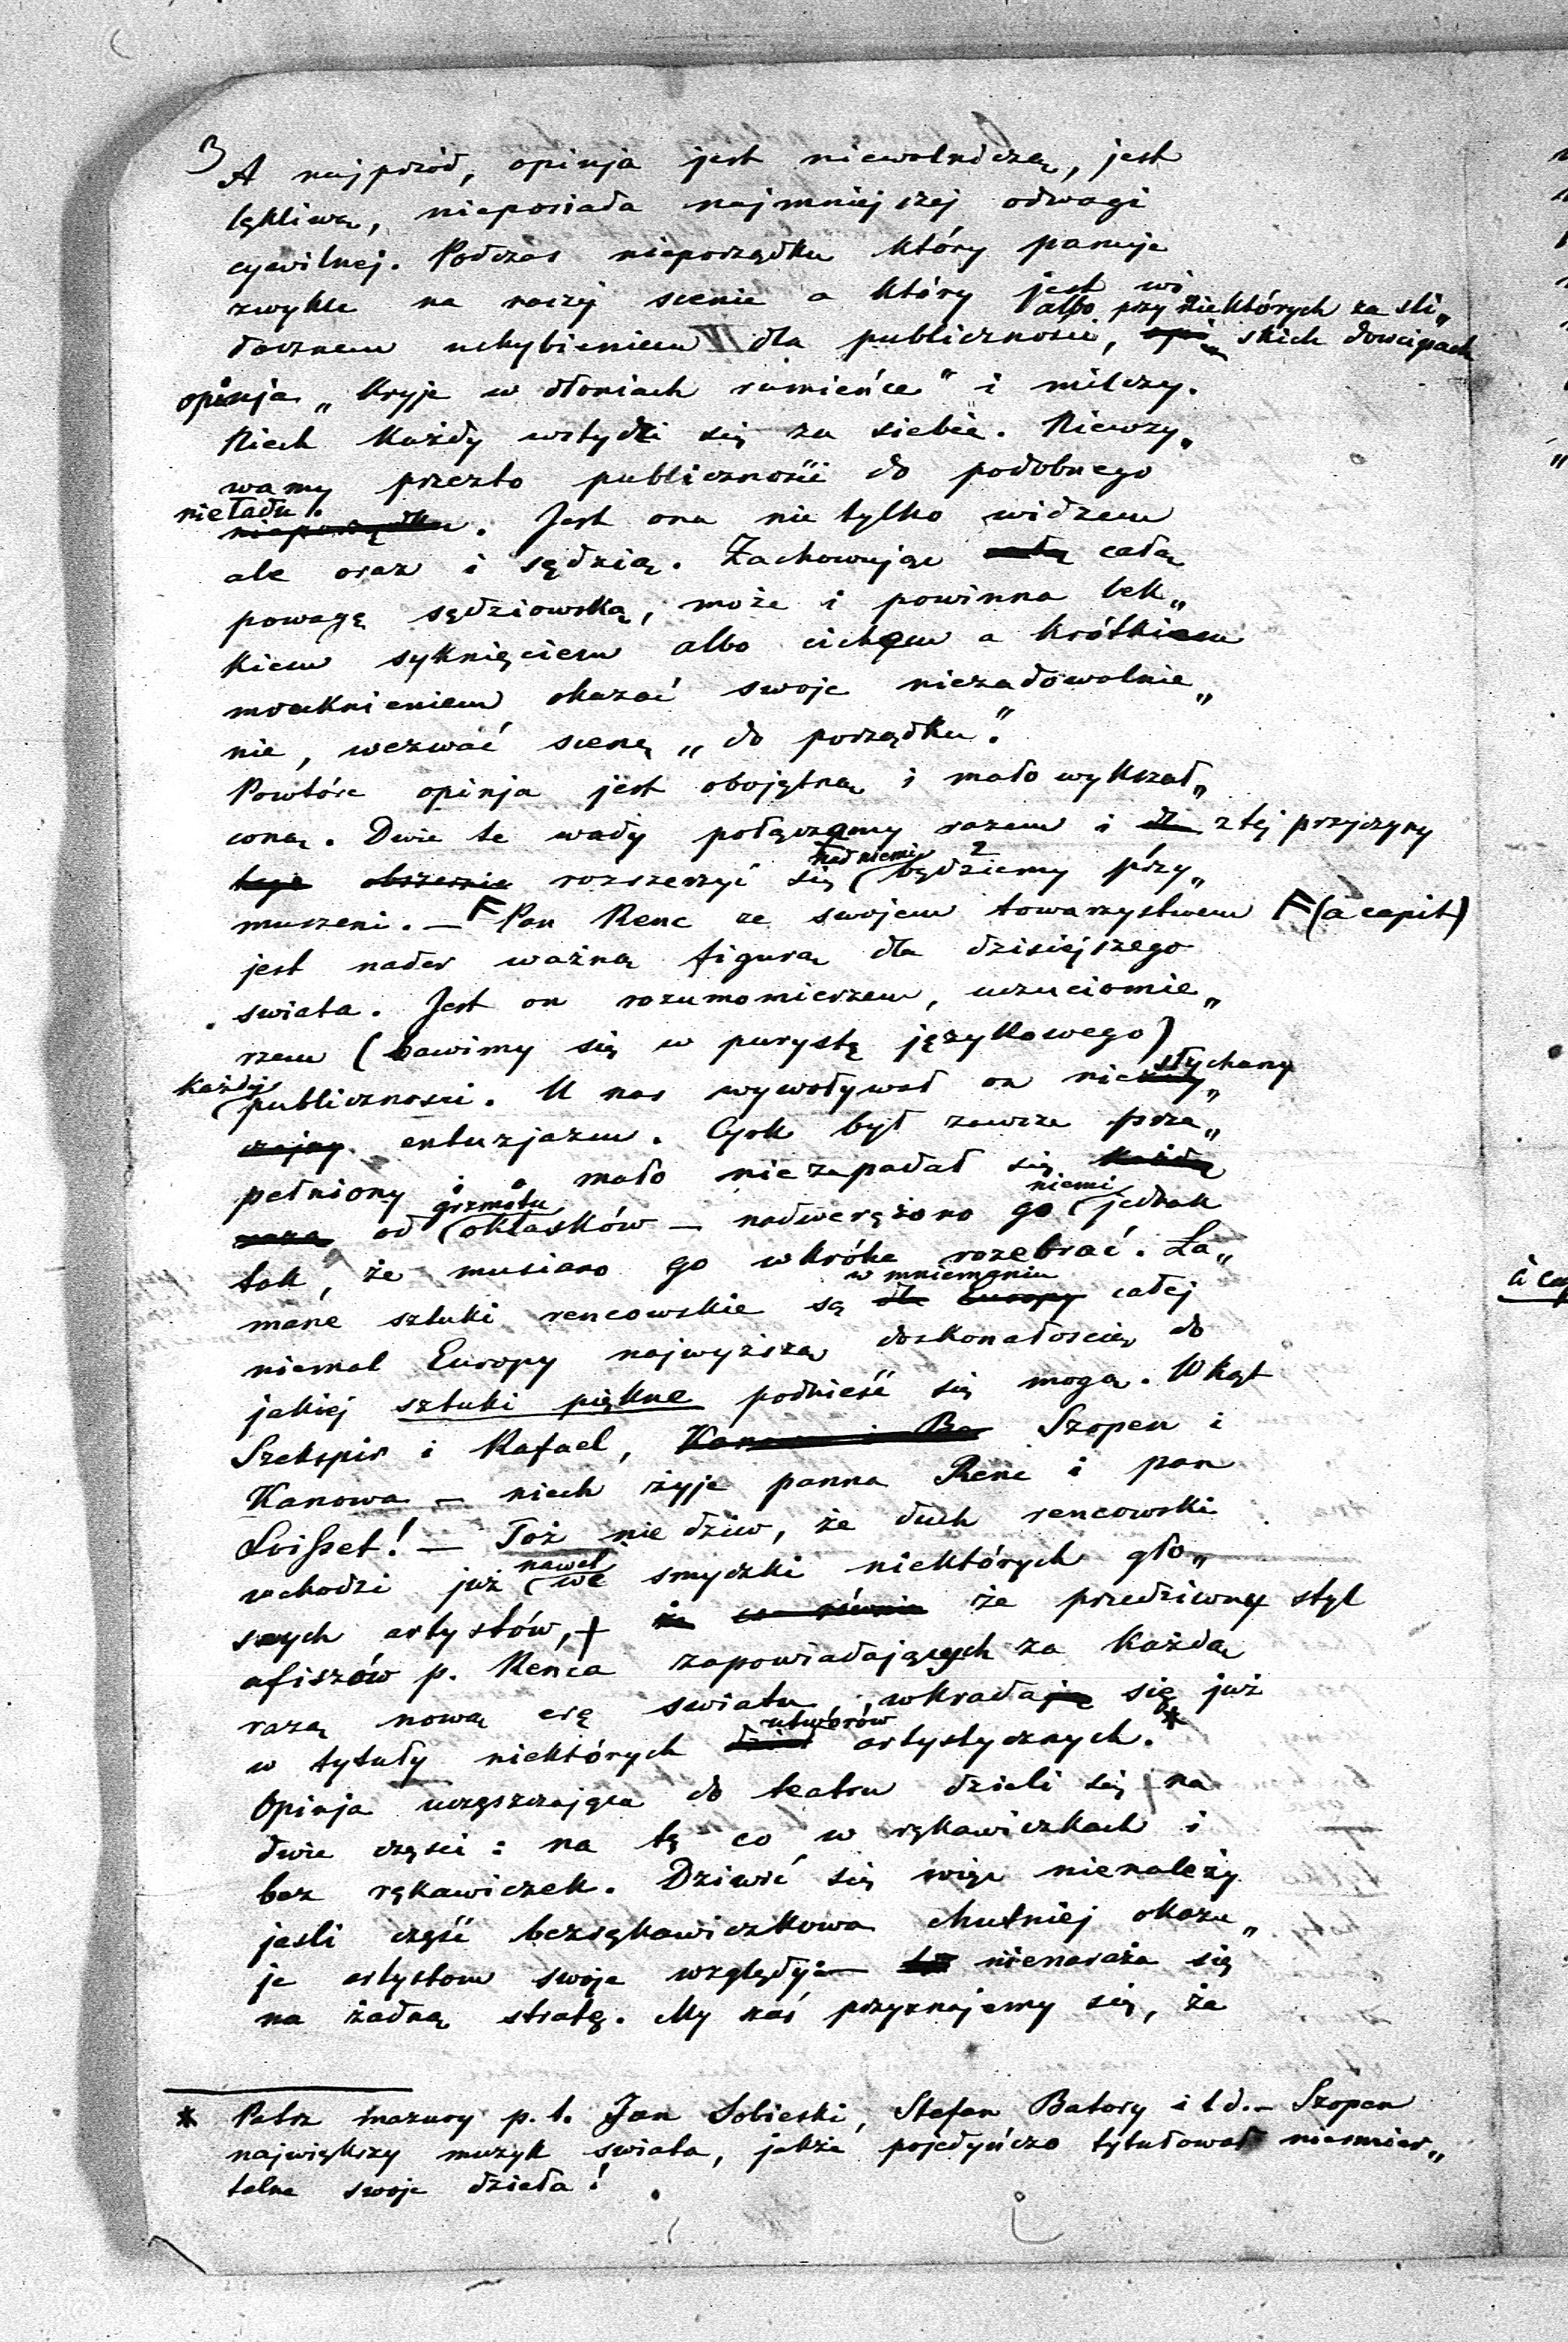 3
A najprzód, opinja jest niewolniczą, jest
lękliwą, nieposiada najmniejszej odwagi
cywilnej. Podczas nieporządku który panuje
zwykle na naszej scenie a który jest wi„
docznem uchybieniem dla publiczności, albo przy niektórych za śli„
skich dowcipach
opinja „kryje w dłoniach rumieńce" i milczy.
Niech każdy wstydzi się za siebie. Niewzy„
wamy przezto publiczności do podobnego
nieładu.
nieporządku. Jest ona nie tylko widzem
ale oraz i sędzią. Zachowując całą całą
powagę sędziowską, może i powinna lek„
kiem syknięciem albo cichem a krótkiem
mruknieniem okazać swoje niezadowolnie„
nie, wezwać scenę „do porządku".
Powtóre opinja jest obojętną i mało wykształ„
coną. Dwie te wady połączamy razem i z tej przyczyny
tego obszernie rozszerzyć się nad niemi będziemy przy„
muszeni. — Pan Renc ze swojem towarzystwem (a capit)
jest nader ważną figurą dla dzisiejszego
świata. Jest on rozumomierzem, uczuciomie„
rzem (bawimy się w purystę językowego)
każdej publiczności. U nas wywoływał on niesłychany
entuzjazm. Cyrk był zawsze prze„
pełniony i o mało niezapadał się każdą
razą od grzmotu oklasków — nadwerężono go niemi jednak
tak, że musiano go wkrótce rozebrać. Ła„
mane sztuki rencowskie są w mniemaniu dla Europy całej
niemal Europy najwyższą doskonałością do
jakiej sztuki piękne podnieść się mogą. W kąt
Szekspir i Rafael, Szopen i
Kanowa — niech żyje panna Renc i pan
Loisset! — Toż nie dziw, że duch rencowski
wchodzi już nawet we smyczki niektórych gło„
snych artystów, że co równie że przedziwny styl
afiszów p. Renca zapowiadających za każdą
razą nową erę światu, wkrada się już
w tytuły niektórych dzieł utworów artystycznych.*
Opinja uczęszczająca do teatru dzieli się na
dwie części: na tę co w rękawiczkach i
bez rękawiczek. Dziwić się więc nienależy
jeśli część bezrękawiczkowa chutniej okazu„
je artystom swoje względy: — nienaraża się
na żadną stratę. My zaś przyznajemy się, że
* Patrz mazury p. t. Jan Sobieski, Stefan Batory i t d. — Szopen
największy muzyk świata, jakże pojedyńczo tytułował nieśmier„
telne swoje dzieła!